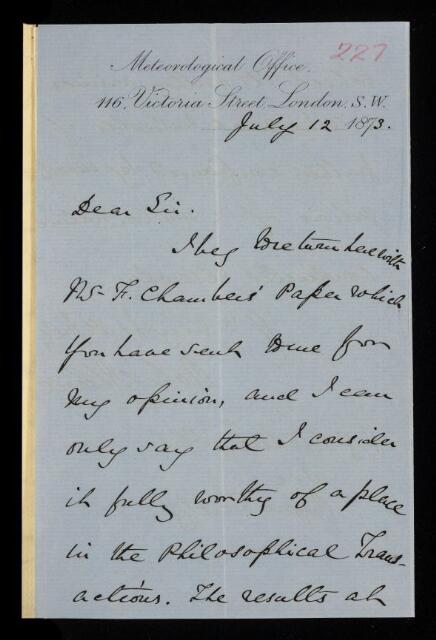 227
Meteorological Office.
116, Victoria Street, London, S.W.
July 12 1873.
Dear Sir.
I beg to return herewith
Mr F. Chambers' Paper which
you have sent to me for
my opinion, and I can
only say that I consider
it fully worthy of a place
in the Philosophical Trans-
actions. The results at